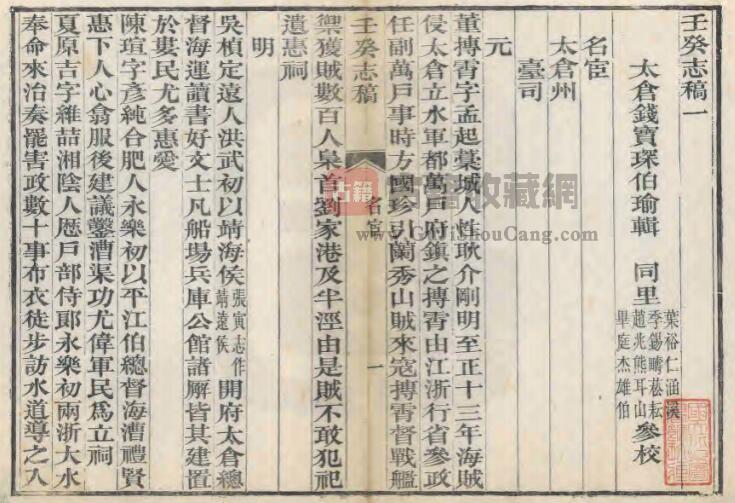 壬癸志稿一
太倉錢寶琛伯瑜輯　同里
葉裕仁涵溪
季錫疇菘耘
趙兆熊耳山
畢庭杰雄伯
參校
名宦
太倉州
臺司
元
董摶霄字孟起藁城人性耿介剛明至正十三年海賊
侵太倉立水軍都萬戶府鎮之摶霄由江浙行省參政
任副萬戶事時方國珍引蘭秀山賊來寇摶霄督戰艦
禦獲賊數百人梟首劉家港及半涇由是賊不敢犯祀
壬癸志稿
名宦
一
遺惠祠
明
吳楨定遠人洪武初以靖海侯張寅志作靖遠侯開府太倉總
督海運讀書好文士凡船場兵庫公館諸廨皆其建置
於婁民尤多惠愛
陳瑄字彥純合肥人永樂初以平江伯總督海漕禮賢
惠下人心翕服後建議鑿漕渠功尤偉軍民爲立祠
夏原吉字維喆湘陰人歷戶部侍郎永樂初兩浙大水
奉命來治奏罷害政數十事布衣徒步訪水道導之入
古籍
收藏網
GujiShouCang.com